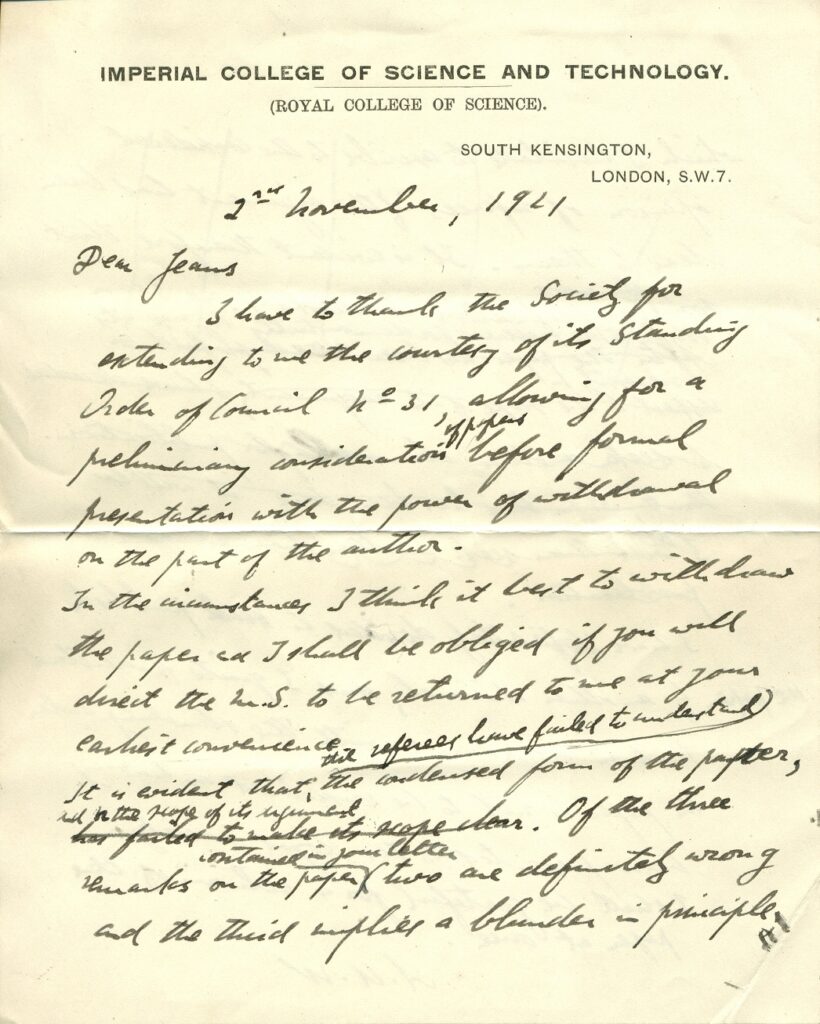 IMPERIAL COLLEGE OF SCIENCE AND TECHNOLOGY.
(ROYAL COLLEGE OF SCIENCE).
SOUTH KENSINGTON,
LONDON, S.W.7.
2nd November, 1921
Dear Jeans
I have to thank the Society for
extending to me the courtesy of its Standing
Order of Council No 31, allowing for a
of papers
preliminary consideration before formal
presentation with the power of withdrawal
on the part of the author.
In the circumstances I think it best to withdraw
the paper and I shall be obliged if you will
direct the M.S. to be returned to me at your
earliest convenience
the referees have failed to understand
It is evident that, the condensed form of the paper,
and the scope of its argument
has failed to make its scope clear. Of the three
contained in your letter
remarks on the paper two are definitely wrong
and the third implies a blunder in principle